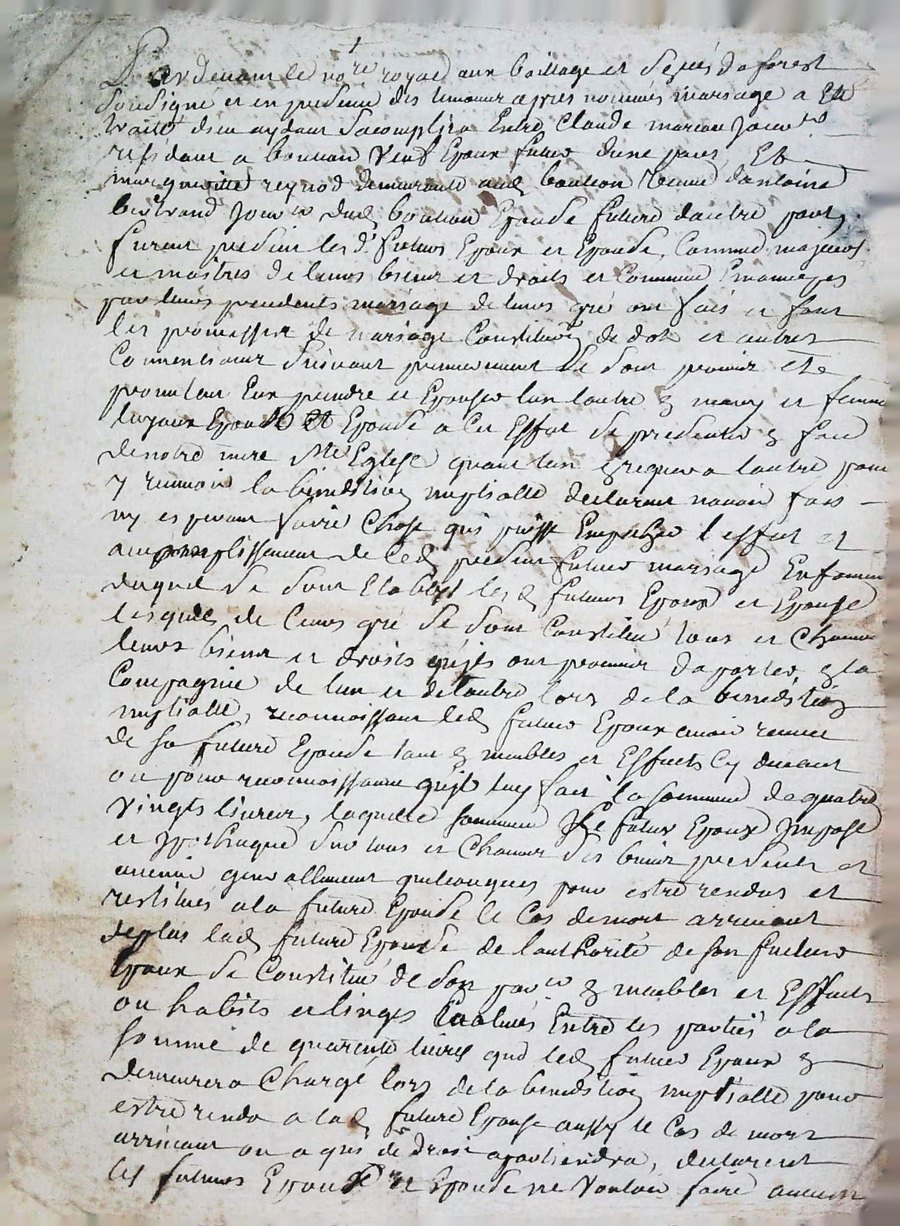 Par devant le no.re royal aux baillage et de forest
soussigné et en presence des temoins apres nommés mariage a été
traité dieu aydant sacomplira Entre Claude marcou Journ.
residant a bouteon veuf Epoux futur dune part, Et
margueritte reynod demeurante aud. bouteon veuve dantoine
bertrand Jour.er dud. bouteon Epouse future dautre part,
furent presents les d. futurs Epoux et Epouse, Comme majeurs
et maitres de leurs biens et droits et Comme Emancipés
par leurs precedents mariage de leurs gré ont fais et font
les promesses de mariage Constitution de dot et autres
Conventions suivant premierement se sont promis et se
promettent Eux prendre et Epouser lun lautre en mary et femme
loyaux Epoux et Epouse a cet Effet se presenter en face
de notre mere Ste Eglise quant lun en requera lautre pour
y recevoir la benediction nuptialle declarant navoir fais
ny esperant faire Chose qui puisse Empecher l'effet et
accomplissement de Ced. present futur mariage En faveur
duquel se sont Etablys les d. futurs Epoux et Epouse
lesquels de leurs gré se sont Constitué tous et Chacuns
leurs biens et droits quils ont promis daporter en la
Compagnie de lun et de lautre lors de la benediction
nuptialle, reconnoissant led. futur Epoux avoir receu
de sa future Epouse tant en meubles et Effects cy devant
ou pour reconnoissance quil luy fait la somme de quatre
vingts livres, laquelle somme le futur Epoux Impose
et Ipotheque sur tous et Chacuns ses biens presents et
avenir generallement quelconques pour estre rendus et
restitués a la future Epouse le Cas de mort arrivant
de plus lad. future Epouse de lauthorité de son futur
Epoux se Constitué de son en meubles et Effects
ou habits et linges Evalués Entre les parties a la
somme de quarente livres que led. futur Epoux en
demeurera Chargé lors de la benediction nuptialle pour
estre rendu a lad. future Epouse aussy le Cas de mort
arrivant ou a qui de droit apartiendra, declarent
les futurs Epoux et Epouse ne vouloir faire aucun